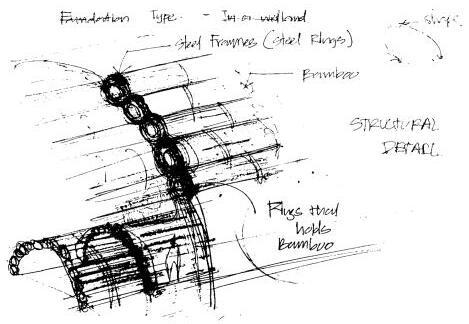 Foundation Type - In or
Steel Frames (Steel Rings)
Bamboo
STRUCTURAL
DETAIL
Rings that
holds
Bamboo